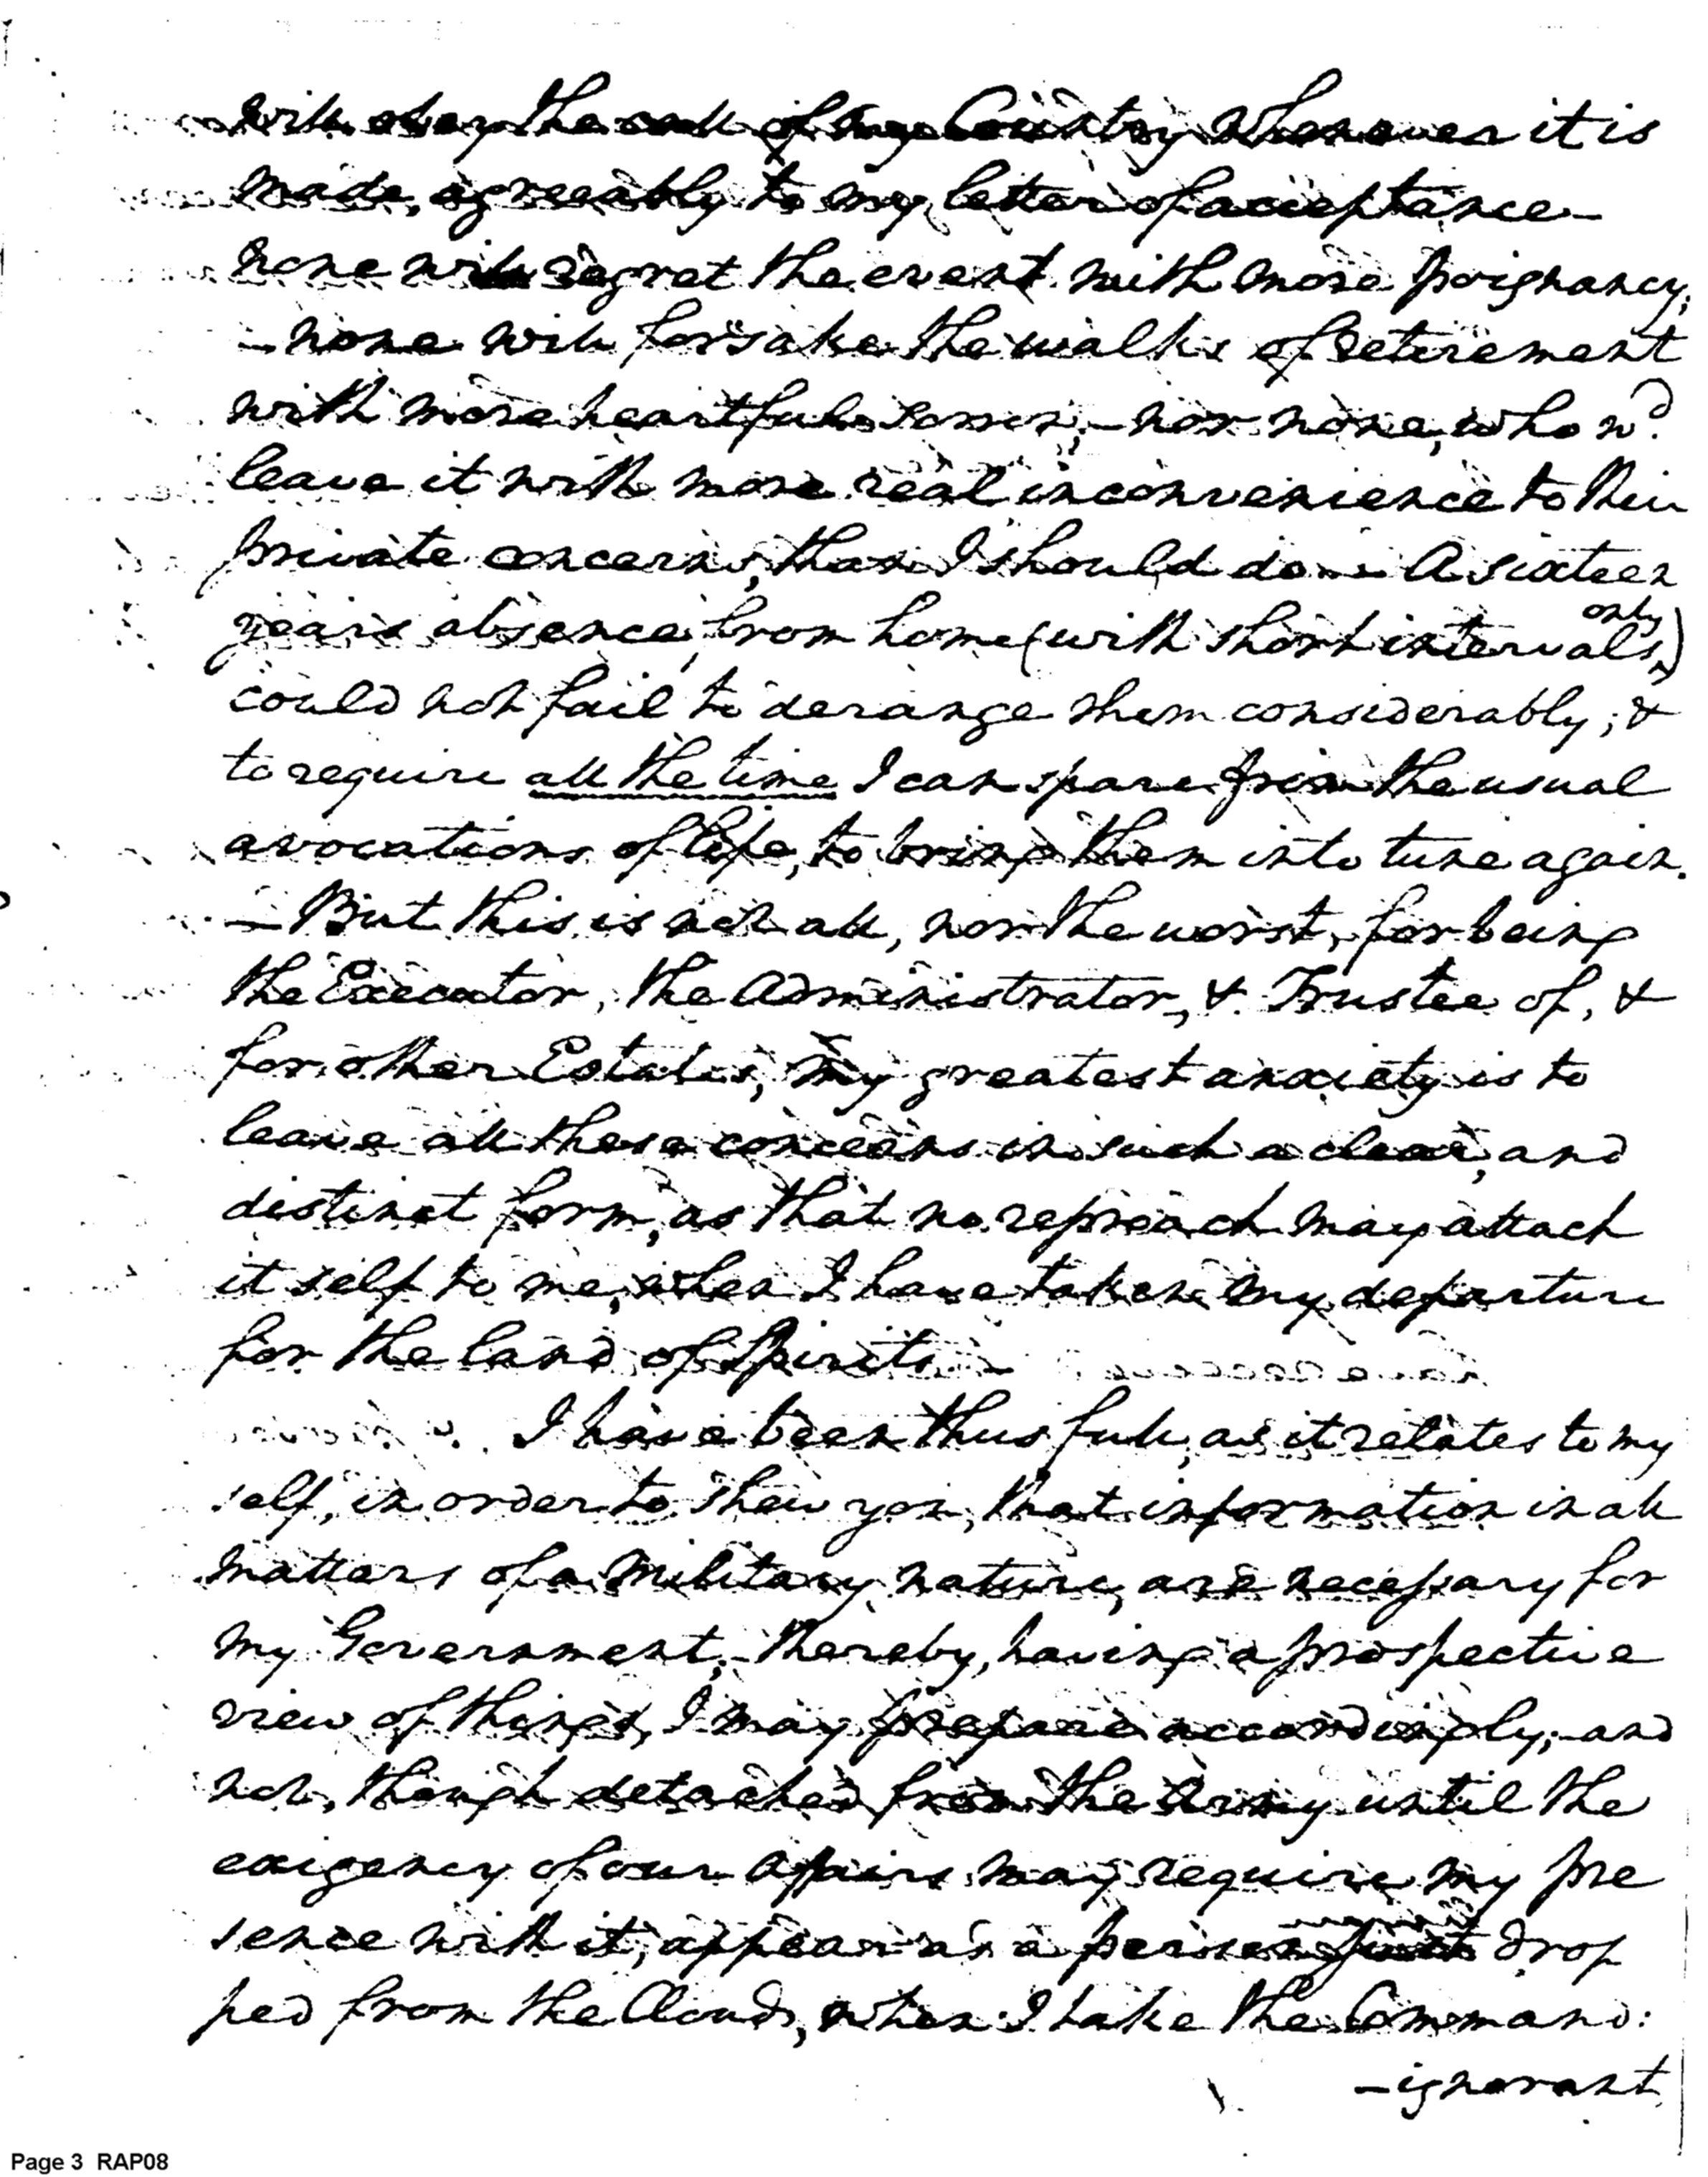 will obey the call of my Country whenever it is
made, agreeably to my letter of acceptance—
none will regret the event with more poignancy;
—none will forsake the walks of retirement
with more heartfull sorrow;—nor none, who wd.
leave it with more real inconvenience to their
private concerns, than I should do.—A sixteen
years absence from home (with short intervals only)
could not fail to derange them considerably; &
to require all the time I can spare from the usual
avocations of life, to bring them into tune again.
—But this is not all, nor the worst, for being
the Executor, the Administrator, & Trustee of, &
for other Estates, my greatest anxiety is to
leave all these concerns in such a clear, and
distinct form, as that no reproach may attach
it self to me, when I have taken my departure
for the land of Spirits.—
I have been thus full, as it relates to my
self, in order to shew you, that information in all
matters of a Military nature, are necessary for
my Government;—thereby, having a prospective
view of things, I may prepare accordingly;—and
not, though detached from the Army until the
exigency of our Affairs may require my pre
sence with it, appear as a person just drop
ped from the Clouds, when I take the Command:
—ignorant
Page 3 RAP08